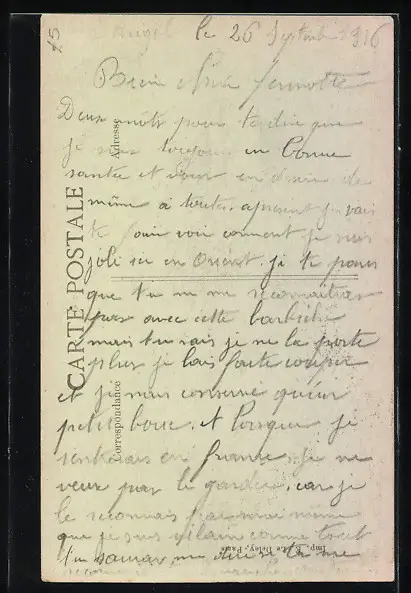 25
le 26 Septembre 1916
Bien chère
Deux mots pour te dire que
je suis toujours en bonne
santé et vous en désire de
même à toutes. apresent je vais
te faire voir comment je suis
joli ici en Orient. je te pense
que tu ne me reconnaîtras
pas avec cette barbiche
mais tu sais je ne la porte
plus je lais faite couper
et je nous conserve
petit bouc. et lorsque je
rentrerais en france. je ne
veux pas le garder. car je
le reconnais moi même
que je suis vilain comme tout
tu sauras me dire si tu me
CARTE POSTALE
Correspondance
Adresse
Imp. E. Le Deley, Paris